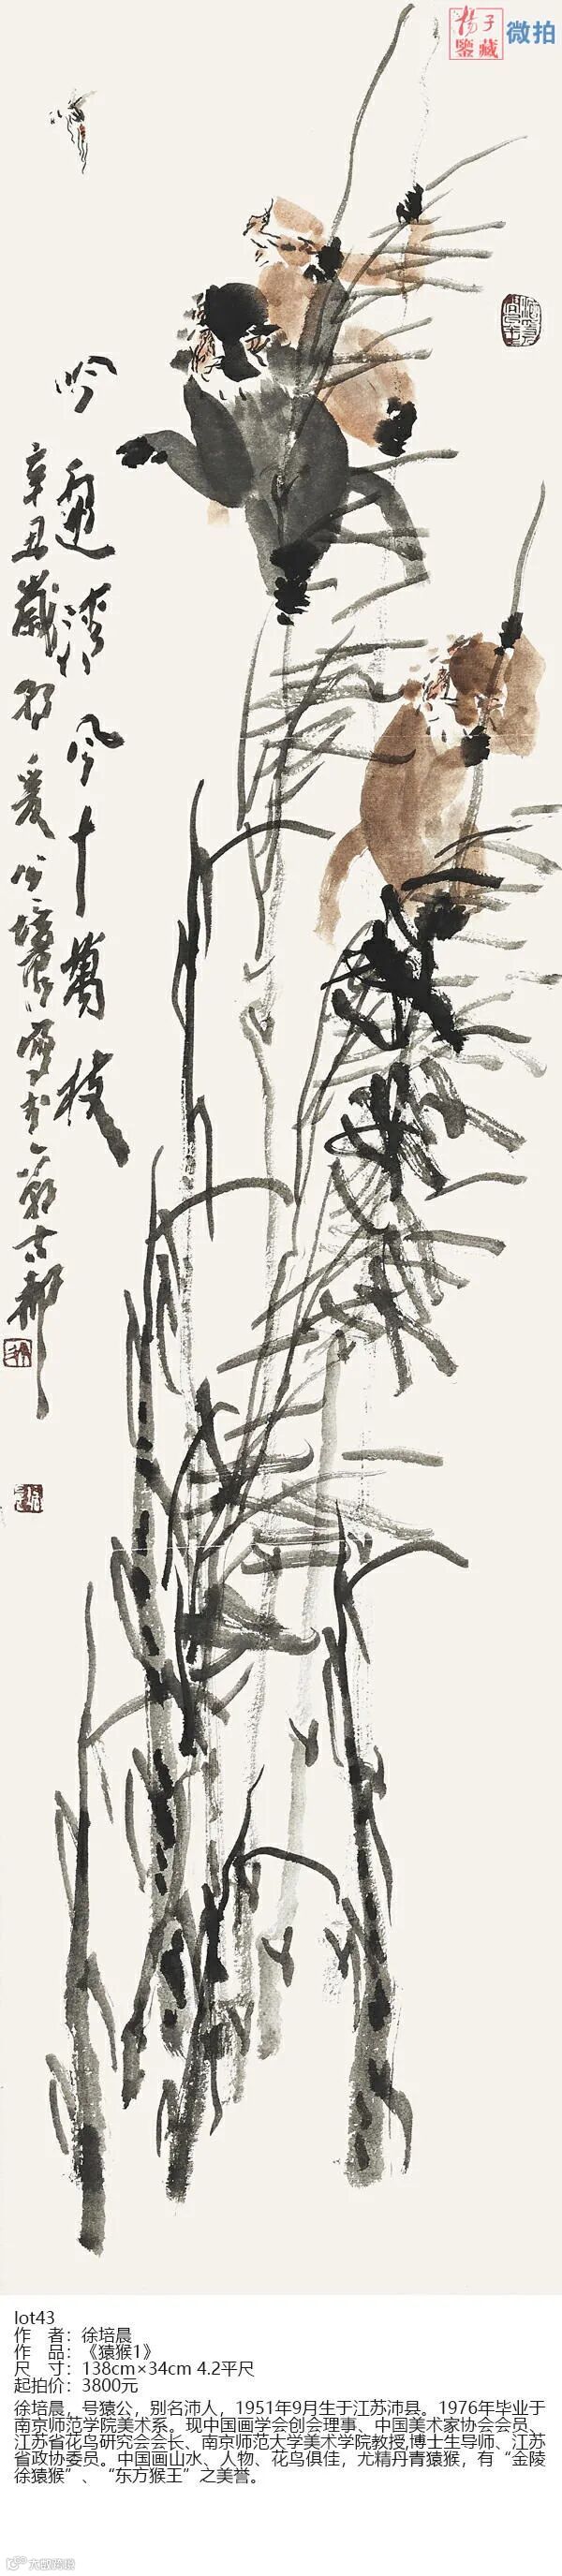 扬子
鉴藏
微拍
吟遍清风十万枝
辛丑岁初爰公培晨写于六朝古都
lot43
作 者：徐培晨
作 品：《猿猴1》
尺 寸：138cm×34cm 4.2平尺
起拍价：3800元
徐培晨，号猿公，别名沛人，1951年9月生于江苏沛县。1976年毕业于
南京师范学院美术系。现中国画学会创会理事、中国美术家协会会员、
江苏省花鸟研究会会长、南京师范大学美术学院教授,博士生导师、江苏
省政协委员。中国画山水、人物、花鸟俱佳，尤精丹青猿猴，有“金陵
徐猿猴”、“东方猴王”之美誉。